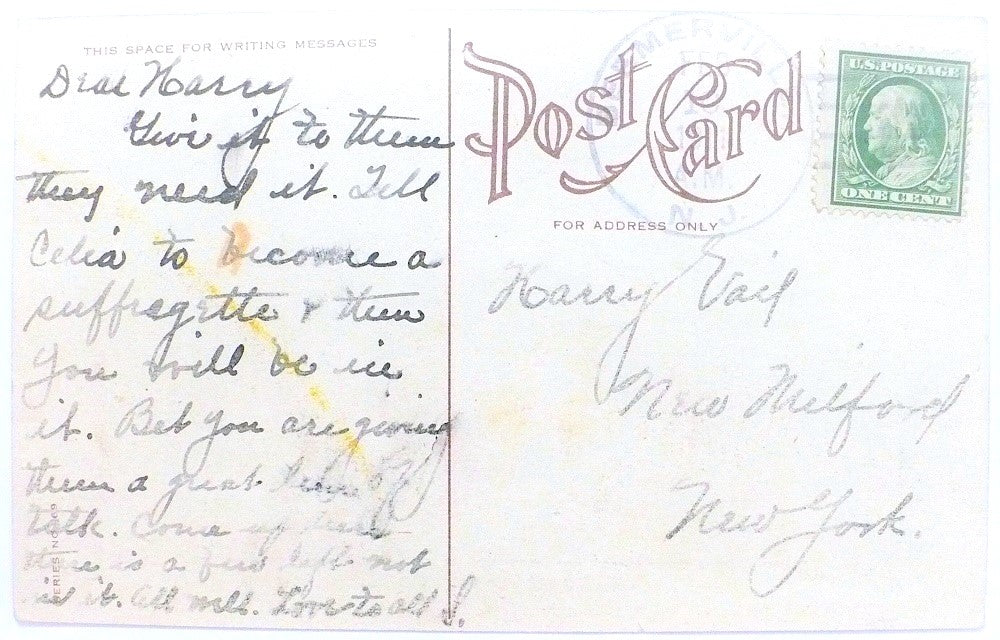 THIS SPACE FOR WRITING MESSAGES
Dear Harry
Give it to them
they need it. Tell
Celia to become a
suffragette & then
you will be in
it. Bet you are giving
them a great
talk. Come up here
there is a few left not
in it. All well. Love to all J.
SERIES NO.
Post Card
FOR ADDRESS ONLY
N.J.
A.M.
U.S. POSTAGE
ONE CENT
Harry Vail
New Milford
New York.